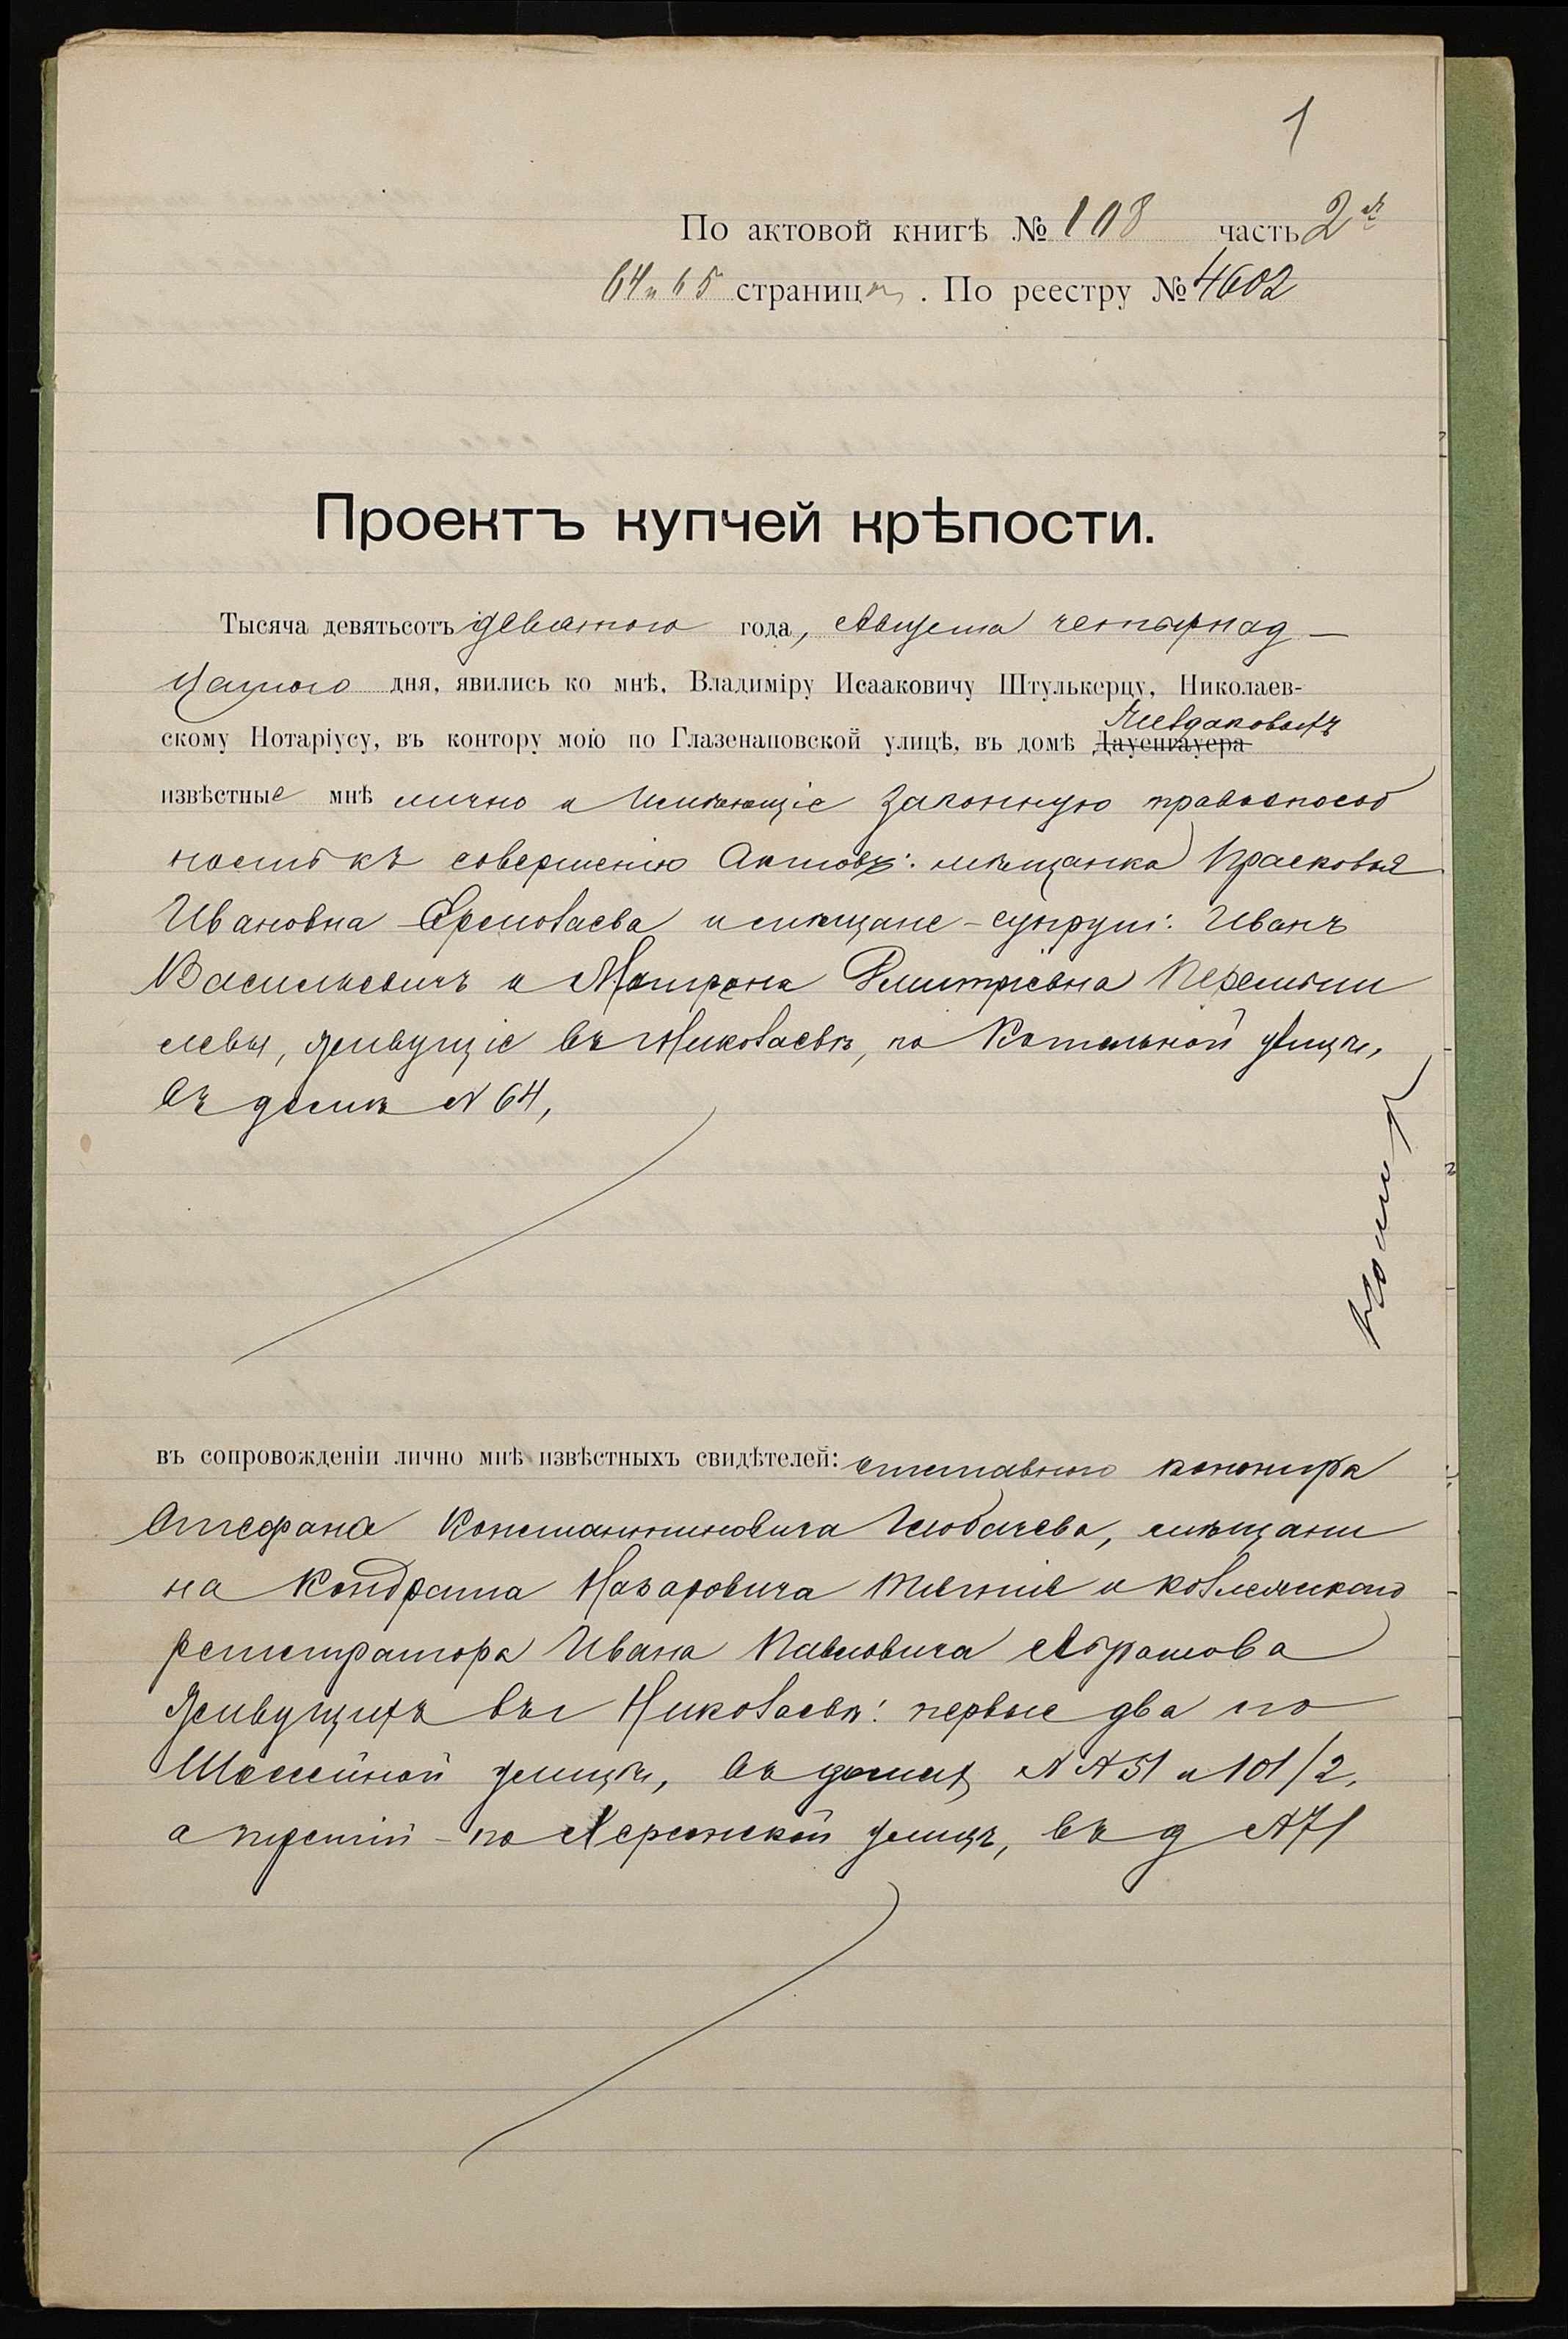 1
По актовой книгѣ № 108 часть 2я
64 и 65 страниц. По реестру № 4602
Проектъ купчей крѣпости.
Тысяча девятьсотъ девятого года, Августа четырнад-
цатого дня, явились ко мнѣ, Владиміру Исааковичу Штулькерцу, Николаев-
скому Нотаріусу, въ контору мою по Глазенаповской улицѣ, въ домѣ Дауенгауера
извѣстные мнѣ лично и имѣющіе законную правоспособ
ность къ совершенію актовъ: мѣщанка Прасковья
Ивановна Ермолаева и мѣщане-супруги: Иванъ
Васильевичъ и Матрона Дмитріевна
живущіе въ Николаевѣ, по Котельной улицѣ,
въ домѣ № 64,
въ сопровожденіи лично мнѣ извѣстныхъ свидѣтелей: отставного канонира
Стефана Константиновича мѣщани
на Кондрата Назаровича и коллежского
регистратора Ивана Павловича Абрамова
живущихъ въ г Николаевѣ: первые два по
Шоссейной улицѣ, въ домахъ №№ 51 и 101/2,
а третій - по Херсонской улицѣ, въ д № 71